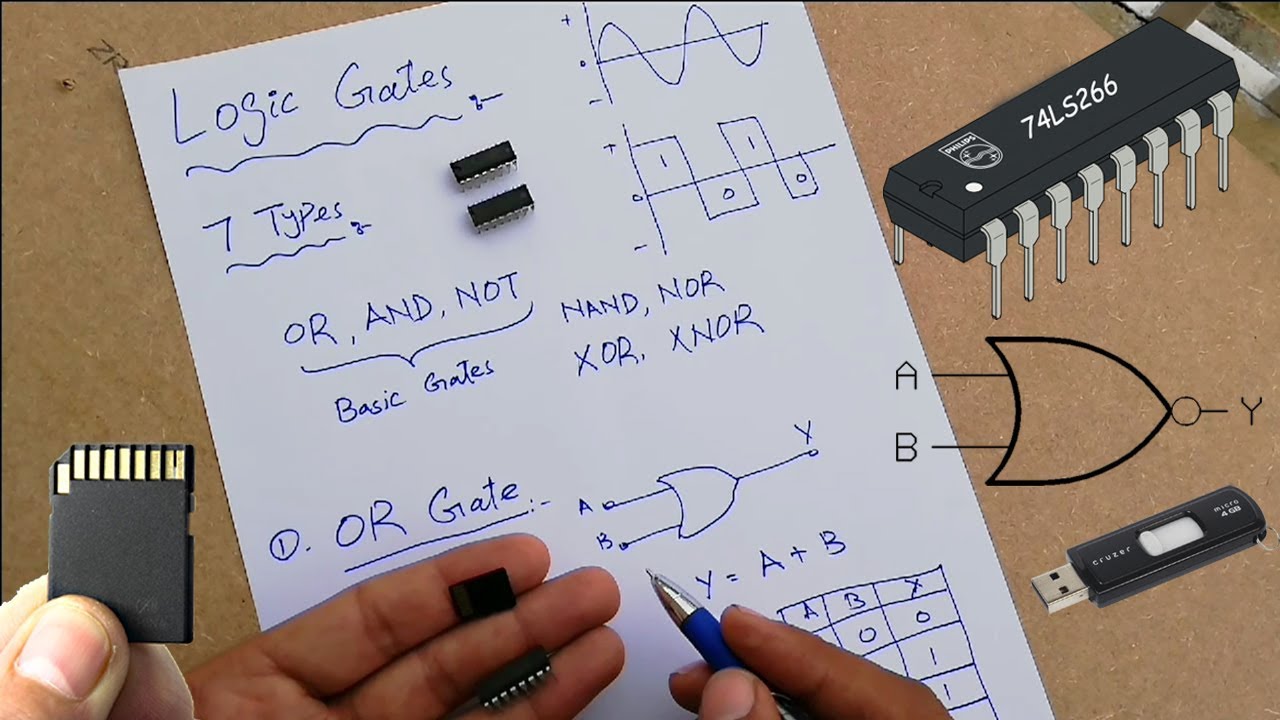 Logic Gates
7 Types
OR, AND, NOT
Basic Gates
NAND, NOR
XOR, XNOR
①. OR Gate :-
A
B
Y
Y = A + B
A B Y
0 0
1
1
+
0
-
+
1 1
0
0 0
-
PHILIPS
74LS266
A
B
Y
cruzer
micro
4 GB